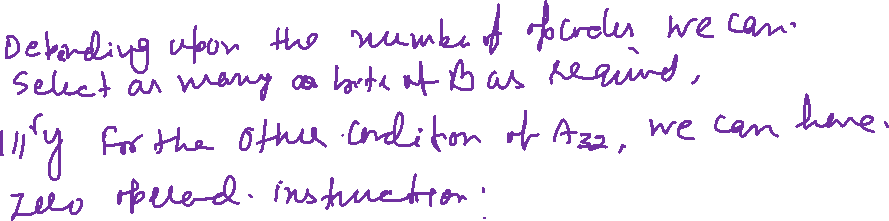 Depending upon the number of opcodes we can.
Select as many as bits of B as required,
|||ʳʸ for the other condition of A₃₂, we can have.
Zero operand. instruction.